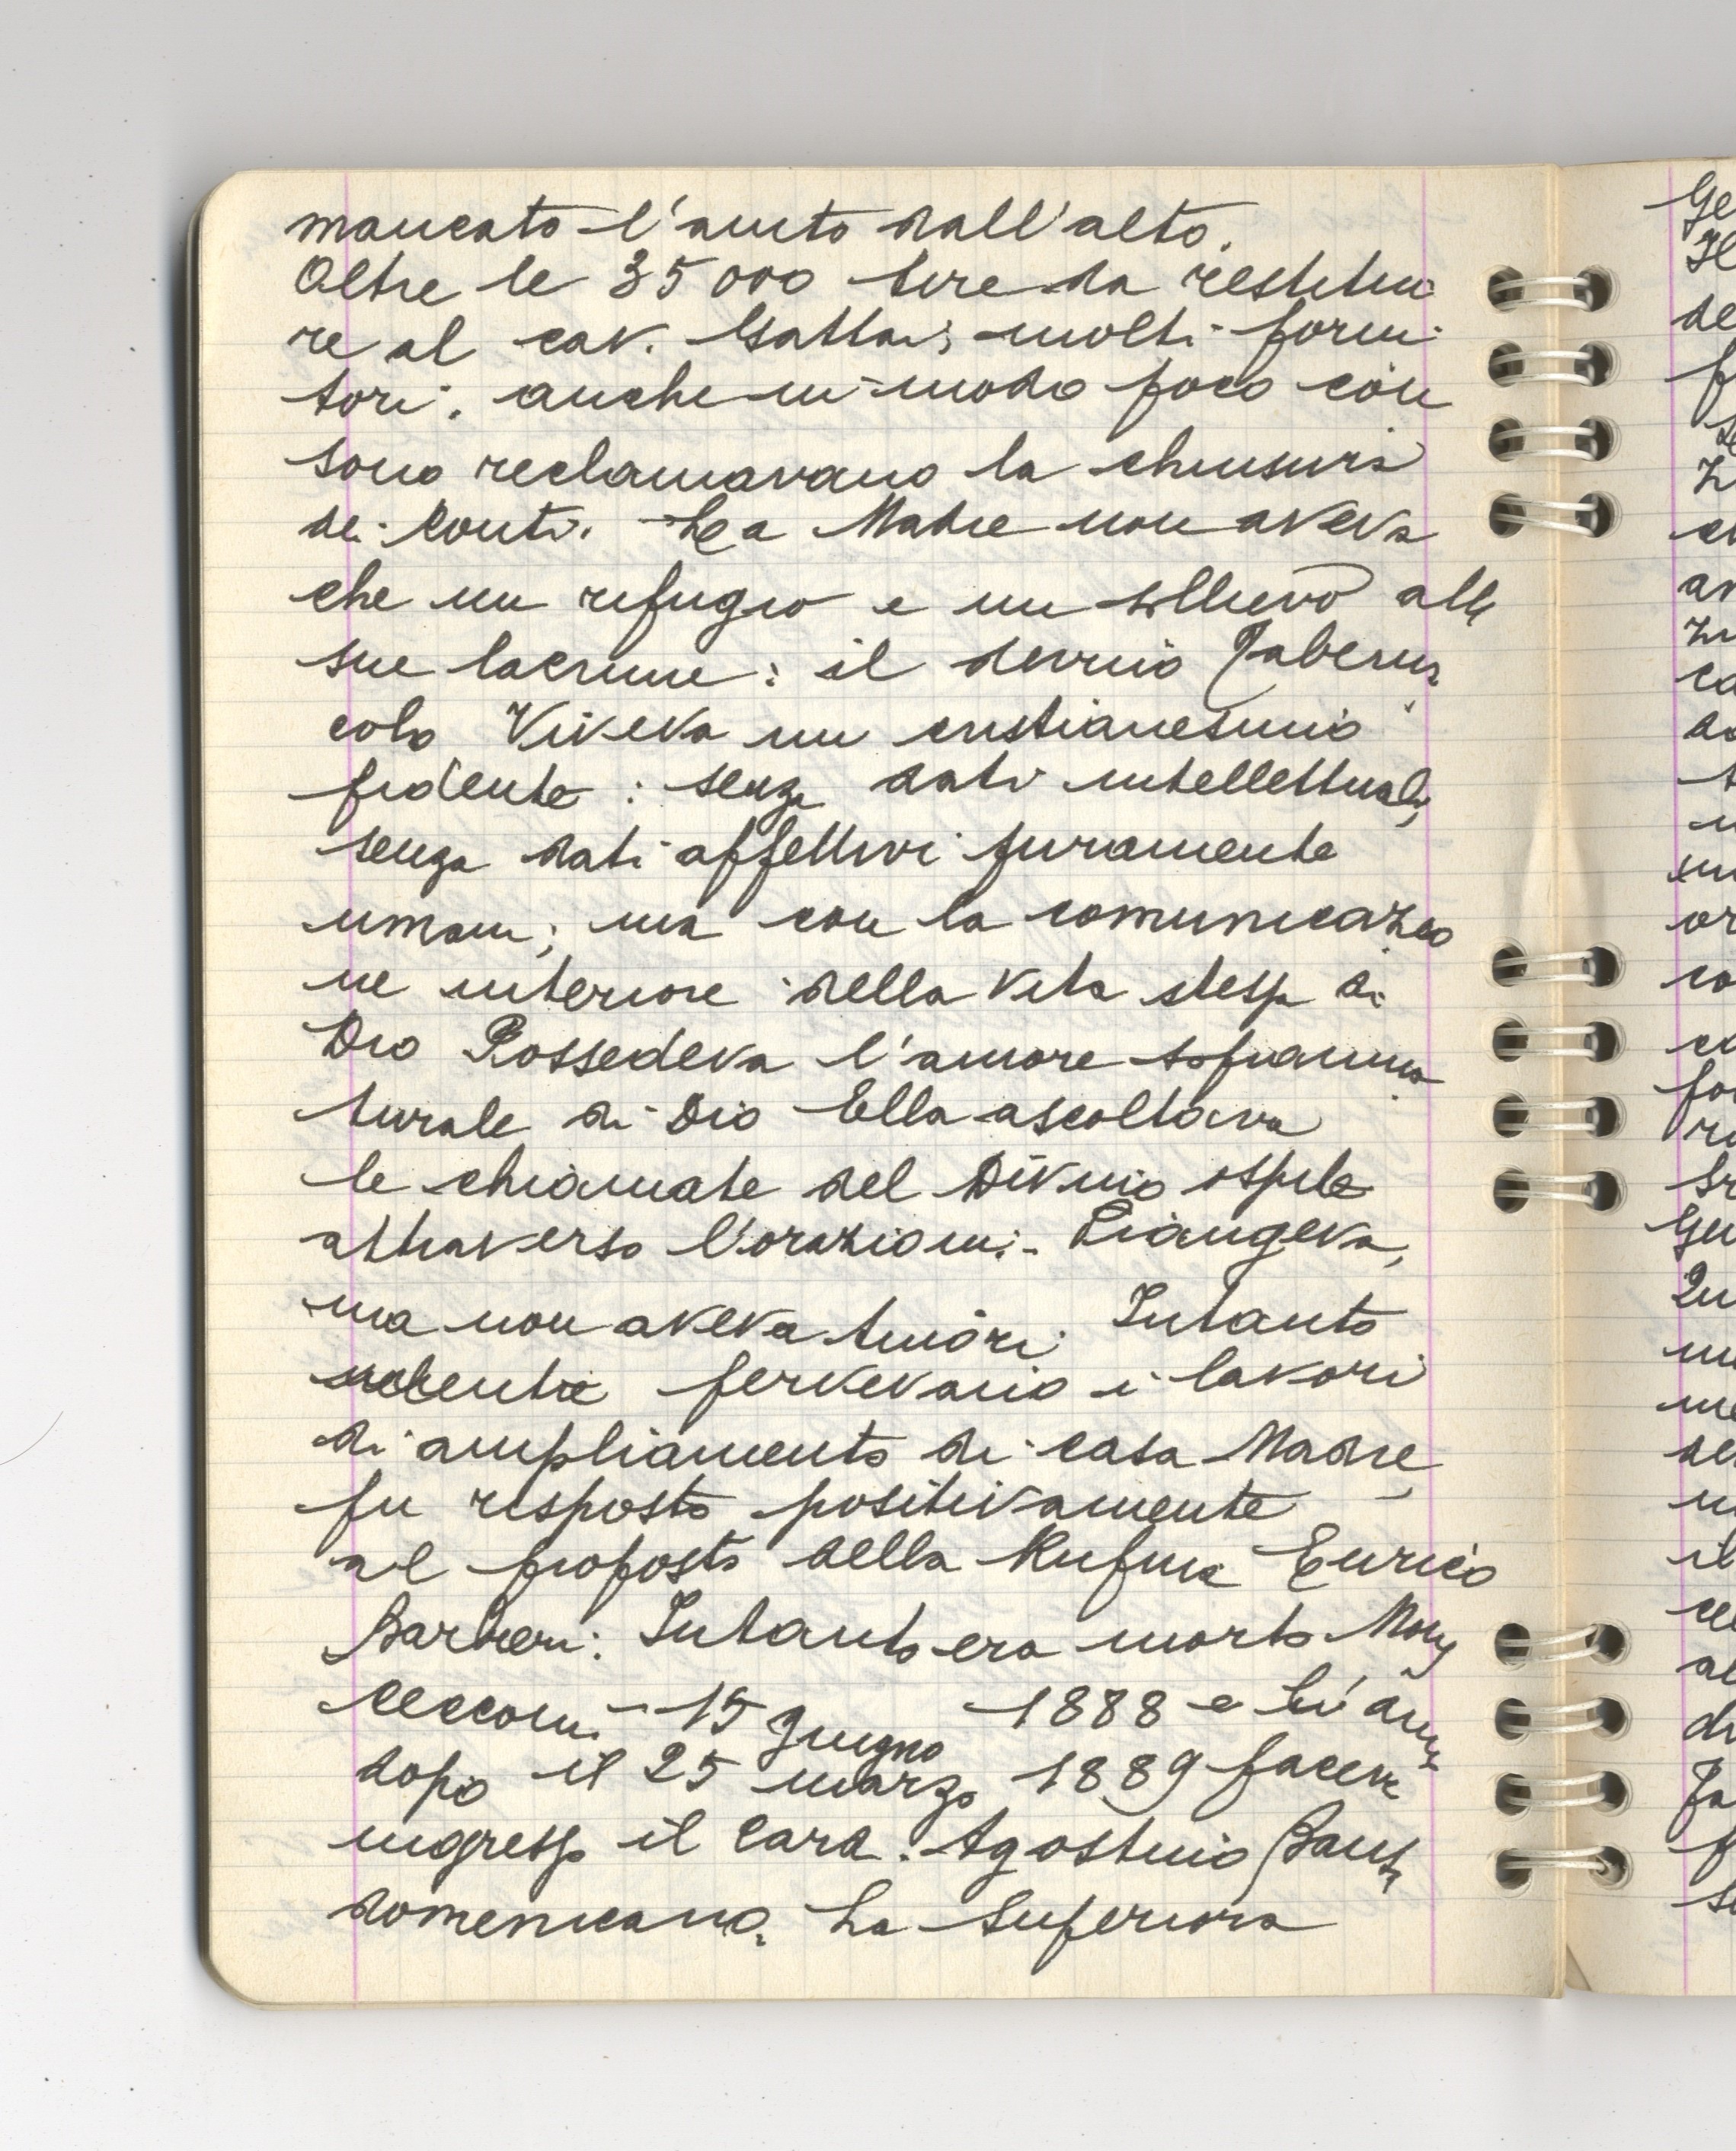 mancato l'aiuto dall'alto.
Oltre le 35000 lire da restitui
re al cav. Gattai, molti forni
tori, anche in modo poco con
sono reclamavano la chiusura
dei conti. La Madre non aveva
che un rifugio e un sollievo alle
sue lacrime: il divino Taberna
colo Viveva un cristianesimo
fidente: senza dati intellettuali,
senza dati affettivi puramente
umani; ma con la comunicazio
ne interiore della vita stessa di
Dio Possedeva l'amore sopranna
turale di Dio Ella ascoltava
le chiamate del Divino ospite
attraverso l'orazioni. Piangeva,
ma non aveva timori. Intanto
mentre fervevano i lavori
di ampliamento di casa Madre,
fu risposto positivamente
al proposto della Rufina Enrico
Barbieri: Intanto era morto Mons
Cecconi 15 giugno 1888 e l'anno
dopo il 25 marzo 1889 faceva
ingresso il Card. Agostino Bausa
domenicano. La Superiora